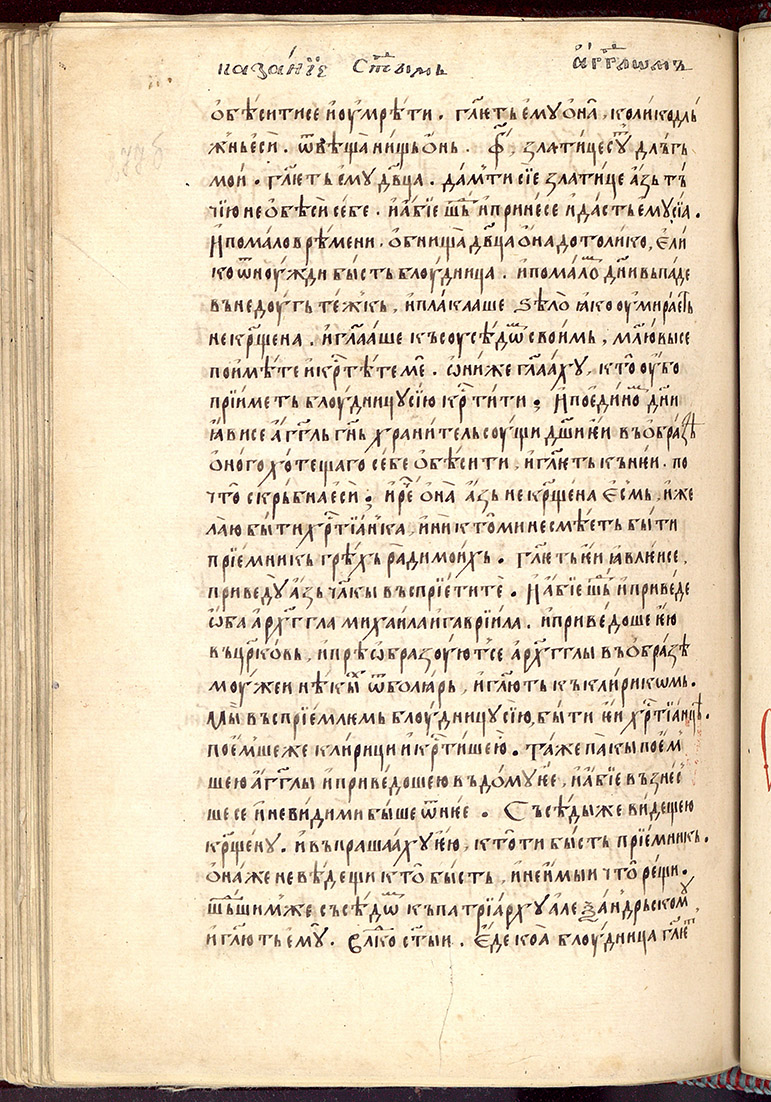 пазанїе ст҃ымь аг҃гл҃ѡмъ
ѻбѣситисе и ѹмрѣти. гл҃ѥть ѥмꙋ ѻна̀, коликодль
жнь ѥсѝ. ѿвѣща нищь ѻнь. ф҃, златице сꙋть дльгь
мои. гл҃ѥть ѥмꙋ дв҃ца. дам ти сїе златице азь тъ
чїю не ѻбѣси себе. и абїе шьд и принесе и дасть ѥмꙋ сїа.
И по мало врѣмени. ѻбнища дв҃ца ѻна до толико, ѥли
ко ѿ нꙋжди бысть блꙋдница. и по малѡ дн҃и выпаде
вь недꙋгь тежкь, и плаклаше ѕѣло ꙗко ѹмираѥть
некрщ҃ена. и гл҃ааше кь сꙋсѣдѡм своимь, млю вы се
поимѣте и крⷭ҇тѣте ме. ѡни же гл҃аахꙋ, кто ѹбо
прїиметь блꙋдницꙋ сїю крⷭ҇тити; И по ѥдиномⸯ дн҃и
ꙗви се аг҃гль гн҃ь хранитель сꙋщи дш҃и ѥи вь ѻбразѣ
ѻного хотещаго себе ѻбѣсити, и гл҃ѥть кь нѥи. по
что скрьбна ѥсѝ; и реⷱ҇ ѻна азь некрщ҃ена ѥсмь, и же
лаю быти хрⷭ҇тїанка, и никто ми не смѣѥть быти
прїемникь грѣхь ради моихь. гл҃ѥть ѥи ꙗвлеи се,
приведꙋ азь чл҃кы вьспрїетите. И абїе шьд и приведе
ѡба архⷢ҇гг҃ла михаила и гаврїила. и приведоше ѥю
вь цр҃ковь, и прѣѡбразꙋютсе архⷢ҇гг҃лы вь ѻбразѣ
мꙋжеи нѣкых ѿ болꙗрь, и гл҃ють кь клирикѡмь.
Мы вьспрїемлѥмь блꙋдницꙋ сїю, быти ѥи хрⷭ҇тїаницѣ.
поѥмше же клирици и крⷭ҇тише ю. таже пакы поѥм
ше ю аг҃глы и приведоше ю вь дом ꙋ ѥе, и абїе вьзнес
ше се и невидими быше ѿ нѥе. Сьсѣды же видеше ю
крщ҃енꙋ. и вьпрашаахꙋ ѥю, кто ти бысть прїемникь.
ѻна же не вѣдещи кто бысть, и не имыи что рещи.
шьдшим же сьсѣдѡм кь патрїархꙋ алеѯандрьскомꙋ,
и гл҃ють ѥмꙋ. вл҃ко ст҃ыи. ѥде коа блꙋдница гл҃ѥт